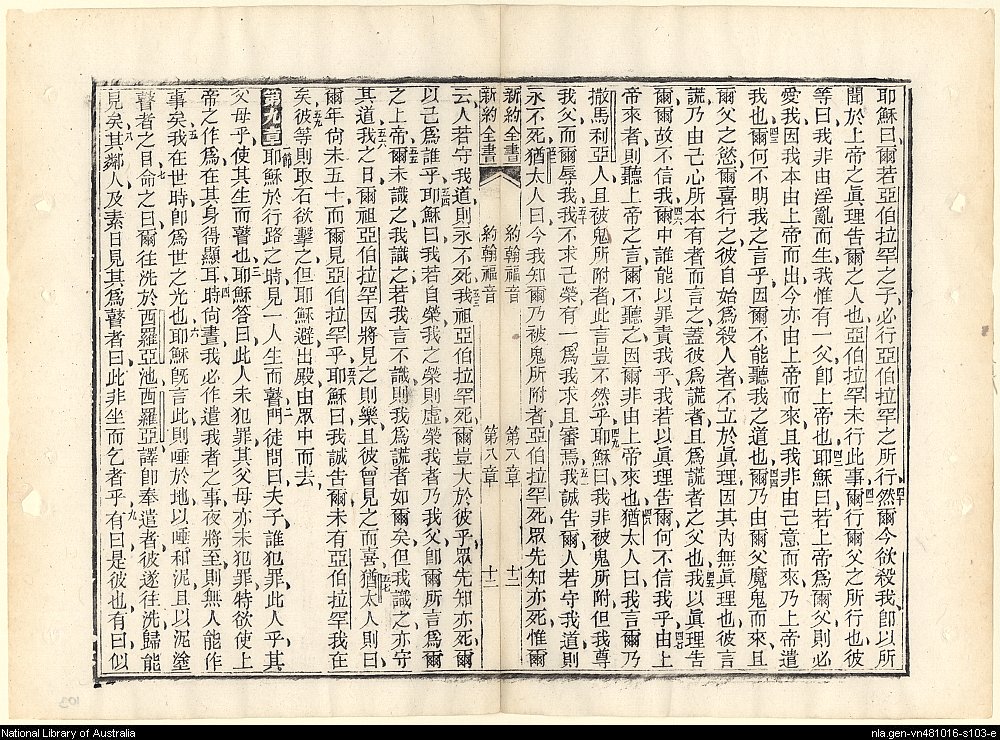 耶穌曰爾若亞伯拉罕之子必行亞伯拉罕之所行四十然爾今欲殺我卽以所
聞於上帝之眞理告爾之人也亞伯拉罕未行此事四一爾行爾父之所行也彼
等曰我非由淫亂而生我惟有一父卽上帝也四二耶穌曰若上帝爲爾父則必
愛我因我本由上帝而出今亦由上帝而來且我非由己意而來乃上帝遣
我也四三爾何不明我之言乎因爾不能聽我之道也四四爾乃由爾父魔鬼而來且
爾父之慾爾喜行之彼自始爲殺人者不立於眞理因其內無眞理也彼言
謊乃由己心所本有者而言之蓋彼爲謊者且爲謊者之父也四五我以眞理告
爾爾故不信我四六爾中誰能以罪責我乎我若以眞理告爾何不信我乎四七由上
帝來者則聽上帝之言爾不聽之因爾非由上帝來也四八猶太人曰我言爾乃
撒馬利亞人且被鬼所附者此言豈不然乎四九耶穌曰我非被鬼所附但我尊
我父而爾辱我五十我不求己榮有一爲我求且審焉五一我誠告爾人若守我道則
永不死五二猶太人曰今我知爾乃被鬼所附者亞伯拉罕死眾先知亦死惟爾
新約全書 約翰福音 第八章 十二
新約全書 約翰福音 第八章 十二
云人若守我道則永不死五三我祖亞伯拉罕死爾豈大於彼乎眾先知亦死爾
以己爲誰乎五四耶穌曰我若自榮我之榮則虛榮我者乃我父卽爾所言爲爾
之上帝五五爾未識之我識之若我言不識則我爲謊者如爾矣但我識之亦守
其道五六我之日爾祖亞伯拉罕因將見之則樂且彼曾見之而喜五七猶太人則曰
爾年尚未五十而爾見亞伯拉罕乎五八耶穌曰我誠告爾未有亞伯拉罕我在
矣五九彼等則取石欲擊之但耶穌避出殿由眾中而去
第九章一節耶穌於行路之時見一人生而瞽二門徒問曰夫子誰犯罪此人乎其
父母乎使其生而瞽也三耶穌答曰此人未犯罪其父母亦未犯罪特欲使上
帝之作爲在其身得顯耳四時尙晝我必作遣我者之事夜將至則無人能作
事矣五我在世時卽爲世之光也六耶穌旣言此則唾於地以唾和泥且以泥塗
瞽者之目七命之曰爾往洗於西羅亞池西羅亞譯卽奉遣者彼遂往洗歸能
見矣八其鄰人及素日見其爲瞽者曰此非坐而乞者乎九有曰是彼也有曰似
National Library of Australia
nla.gen-vn481016-s103-e